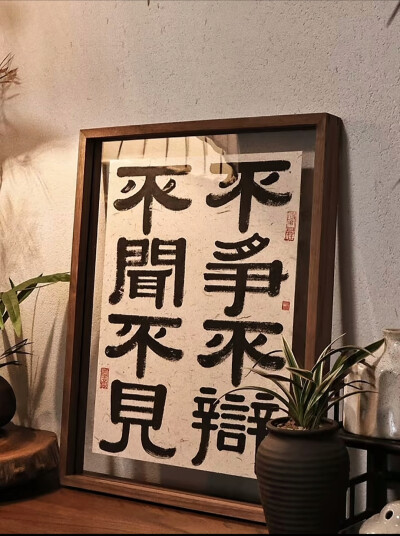 不爭不辯
不聞不見